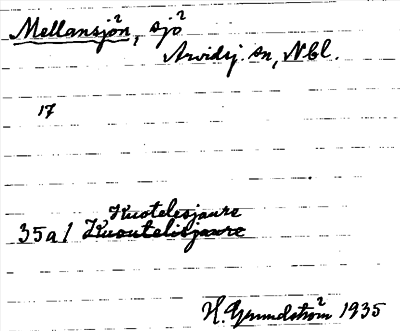 Mellansjön, sjö
Arvidsj. sn, Nbl.
17
Kuotelesjaure
35a1 Kuoutelisjaure
H. Grundström 1935